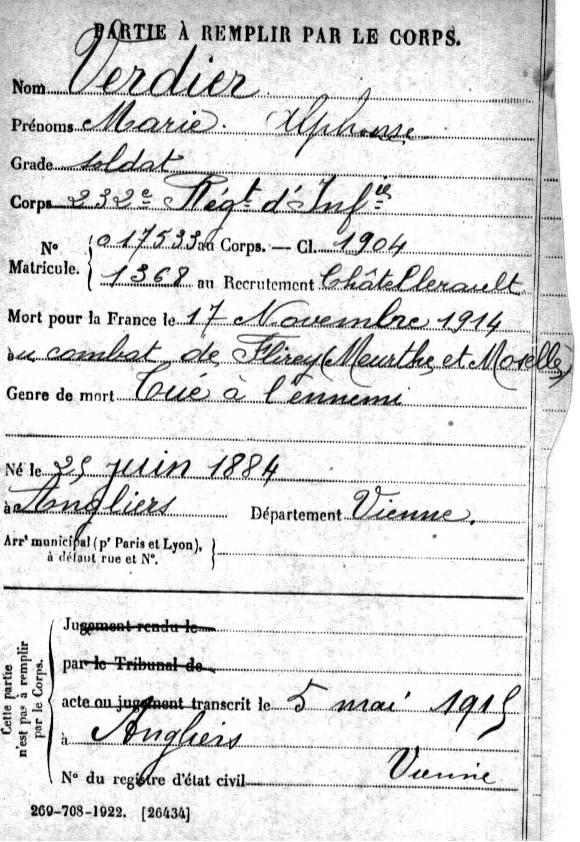 PARTIE À REMPLIR PAR LE CORPS.
Nom Verdier
Prénoms Marie Alphonse
Grade soldat
Corps 232e Régt d'Infie
N° 017533 au Corps. — Cl. 1904
Matricule. 1368 au Recrutement Châtellerault
Mort pour la France le 17 Novembre 1914
au combat de Flirey (Meurthe et Moselle)
Genre de mort Tué à l'ennemi
Né le 25 juin 1884
à Angliers Département Vienne.
Arrt municipal (pr Paris et Lyon),
à défaut rue et N°.
Cette partie
n'est pas à remplir
par le Corps.
Jugement rendu le
par le Tribunal de
acte ou jugement transcrit le 5 mai 1915
à Angliers
Vienne
N° du registre d'état civil
269-708-1922. [26434]